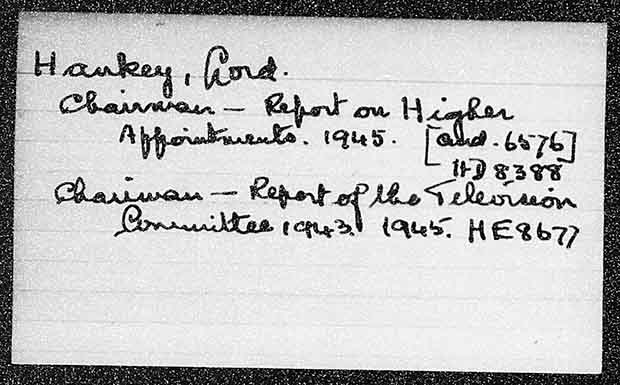 Hankey, Lord.
Chairman — Report on Higher
Appointments. 1945. [Cmd. 6576]
HD 8388
Chairman — Report of the Television
Committee 1943. 1945. HE8677